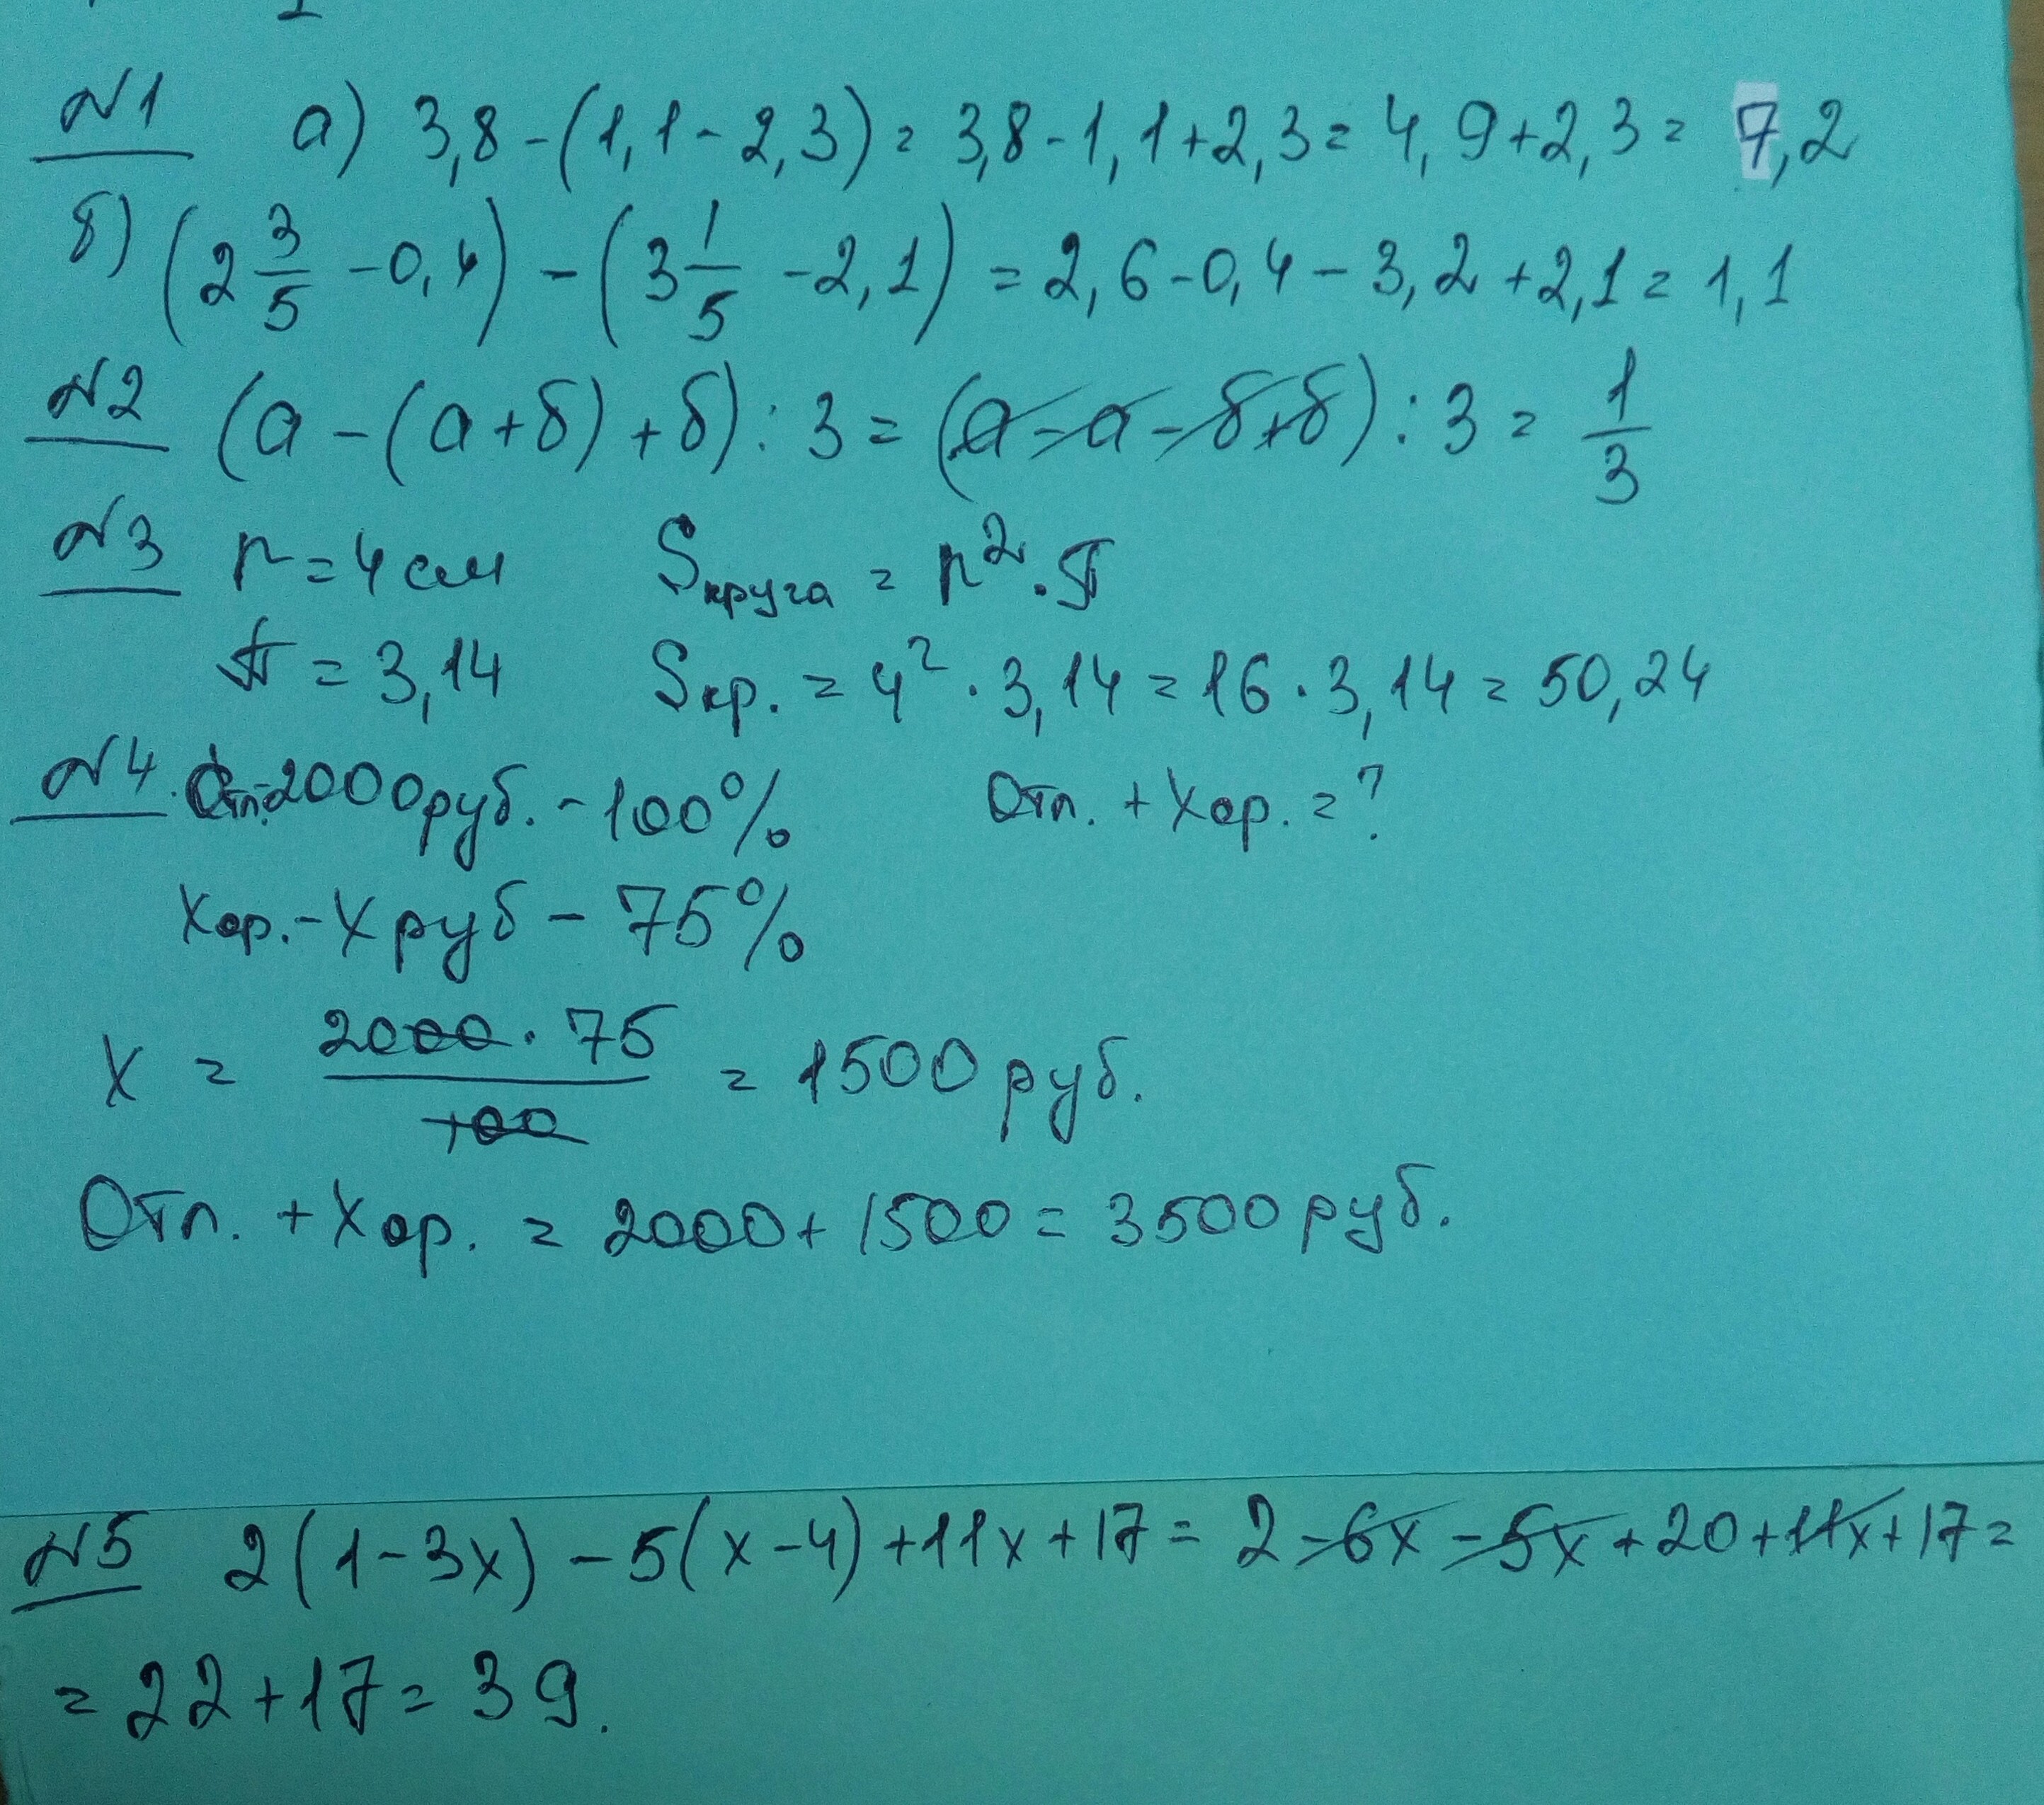 №1 а) 3,8-(1,1-2,3)=3,8-1,1+2,3=4,9+2,3=7,2
б) (2 3/5 -0,4)-(3 1/5 -2,1)=2,6-0,4-3,2+2,1=1,1
№2 (а-(а+б)+б):3=(а-а-б+б):3=1/3
№3 r=4см Sкруга=r²·π
π=3,14 Sкр.=4²·3,14=16·3,14=50,24
№4. Отл.-2000руб.-100% Отл.+Хор.=?
Хор.-Х руб-75%
Х=2000·75/100=1500руб.
Отл.+Хор.=2000+1500=3500руб.
№5 2(1-3х)-5(х-4)+11х+17=2-6х-5х+20+11х+17=
=22+17=39.